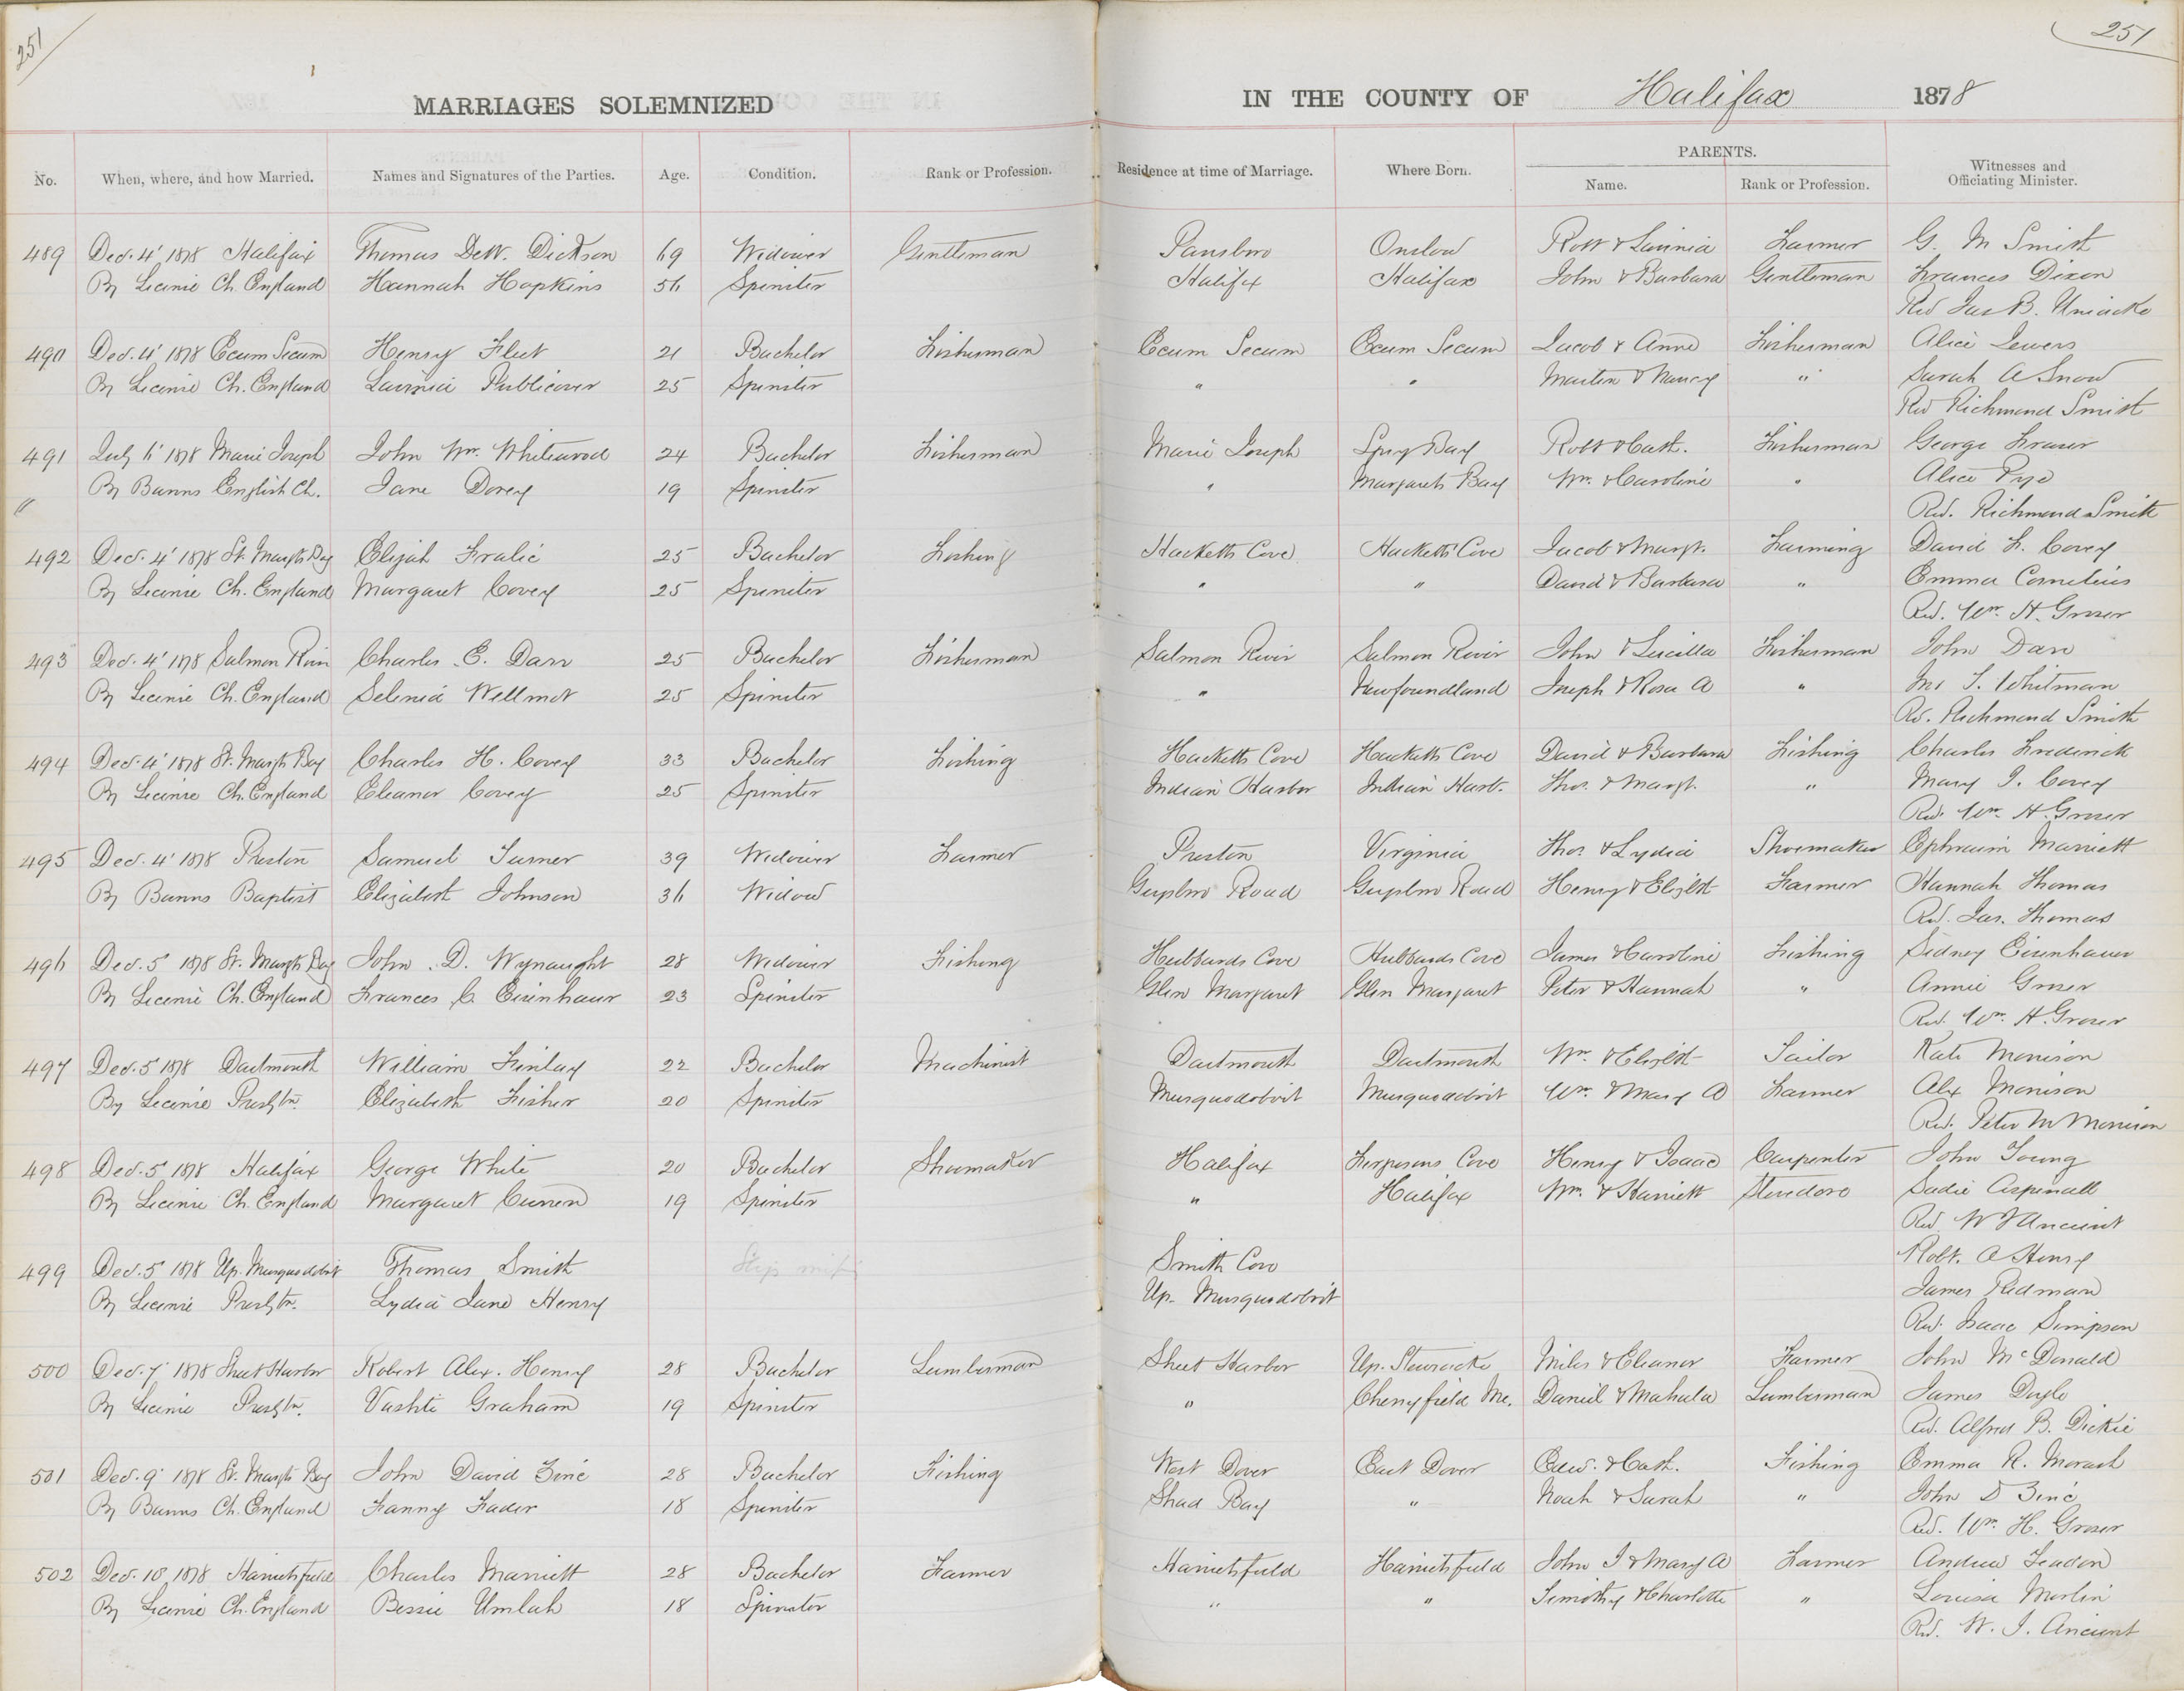 251
251
MARRIAGES SOLEMNIZED IN THE COUNTY OF Halifax 1878
No. When, where, and how Married. Names and Signatures of the Parties. Age. Condition. Rank or Profession. Residence at time of Marriage. Where Born. PARENTS. Name. Rank or Profession. Witnesses and Officiating Minister.
489 Dec. 4' 1878 Halifax Thomas DeW. Dickson 69 Widower Gentleman Parrsboro Onslow Robt & Lavinia Farmer G. M Smith
By License Ch. England Hannah Hopkins 56 Spinster Halifax Halifax John & Barbara Gentleman Frances Dixon
Rev Jas B. Uniacke
490 Dec. 4' 1878 Ecum Secum Henry Fleet 21 Bachelor Fisherman Ecum Secum Ecum Secum Jacob & Anne Fisherman Alice Jewers
By License Ch. England Lavinia Publicover 25 Spinster " " Martin & Nancy " Sarah A Snow
Rev Richmond Smith
491 July 6' 1878 Marie Joseph John Wm. Whitewood 24 Bachelor Fisherman Marie Joseph Spry Bay Robt & Cath. Fisherman George Fraser
" By Banns English Ch. Jane Dorey 19 Spinster " Margarets Bay Wm. & Caroline " Alice Pye
Rev. Richmond Smith
492 Dec. 4' 1878 St. Margts Bay Elijah Fralic 25 Bachelor Fishing Hacketts Cove Hacketts Cove Jacob & Margt. Farming David F. Covey
By License Ch. England Margaret Covey 25 Spinster " " David & Barbara " Emma Cornelius
Rev. Wm. H. Groser
493 Dec. 4' 1878 Salmon River Charles E. Darr 25 Bachelor Fisherman Salmon River Salmon River John & Lucilla Fisherman John Darr
By License Ch. England Selenia Wellmot 25 Spinster " Newfoundland Joseph & Rosa A " Mr J. Whitman
Rev. Richmond Smith
494 Dec. 4' 1878 St. Margts Bay Charles H. Covey 33 Bachelor Fishing Hacketts Cove Hacketts Cove David & Barbara Fishing Charles Frederick
By License Ch. England Eleanor Covey 25 Spinster Indian Harbor Indian Harb. Thos. & Margt. " Mary J. Covey
Rev. Wm. H. Groser
495 Dec. 4' 1878 Preston Samuel Turner 39 Widower Farmer Preston Virginia Thos. & Lydia Shoemaker Ephraim Marriett
By Banns Baptist Elizabeth Johnson 36 Widow Guysboro Road Guysboro Road Henry & Elizbt Farmer Hannah Thomas
Rev. Jas. Thomas
496 Dec. 5' 1878 St. Margts Bay John D. Wynaught 28 Widower Fishing Hubbards Cove Hubbards Cove James & Caroline Fishing Sidney Eisenhauer
By License Ch. England Frances C. Eisinhaur 23 Spinster Glen Margaret Glen Margaret Peter & Hannah " Annie Groser
Rev. Wm. H. Groser
497 Dec. 5 1878 Dartmouth William Finlay 22 Bachelor Machinist Dartmouth Dartmouth Wm. & Elizbt Tailor Kate Morrison
By License Presbtn. Elizabeth Fisher 20 Spinster Musquodoboit Musquodoboit Wm. & Mary A Farmer Alex Morrison
Rev. Peter M Morrison
498 Dec. 5' 1878 Halifax George White 20 Bachelor Shoemaker Halifax Fergusons Cove Henry & Isaac Carpenter John Young
By License Ch. England Margaret Curren 19 Spinster " Halifax Wm. & Harriett Stevedore Sadie Aspenall
Rev. W J Ancient
499 Dec. 5' 1878 Up. Musquodoboit Thomas Smith Smith Cove Robt. A Henry
By License Presbtn. Lydia Jane Henry Up. Musquodoboit James Redman
Rev. Isaac Simpson
500 Dec. 7' 1878 Sheet Harbor Robert Alex. Henry 28 Bachelor Lumberman Sheet Harbor Up. Stewiacke Miles & Eleanor Farmer John McDonald
By License Presbtn. Vashti Graham 19 Spinster " Cherryfield Me. Daniel & Mahala Lumberman James Doyle
Rev. Alfred B. Dickie
501 Dec. 9' 1878 St. Margts Bay John David Zinc 28 Bachelor Fishing West Dover East Dover Edw. & Cath. Fishing Emma R. Morash
By Banns Ch. England Fanny Fader 18 Spinster Shad Bay " Noah & Sarah " John D Zinc
Rev. Wm. H. Groser
502 Dec. 10' 1878 Harrietsfield Charles Marriott 28 Bachelor Farmer Harrietsfield Harrietsfield John J & Mary A Farmer Andrew
By License Ch. England Bessie Umlah 18 Spinster " " Timothy & Charlotte " Louisa Marlin
Rev. W. J. Ancient